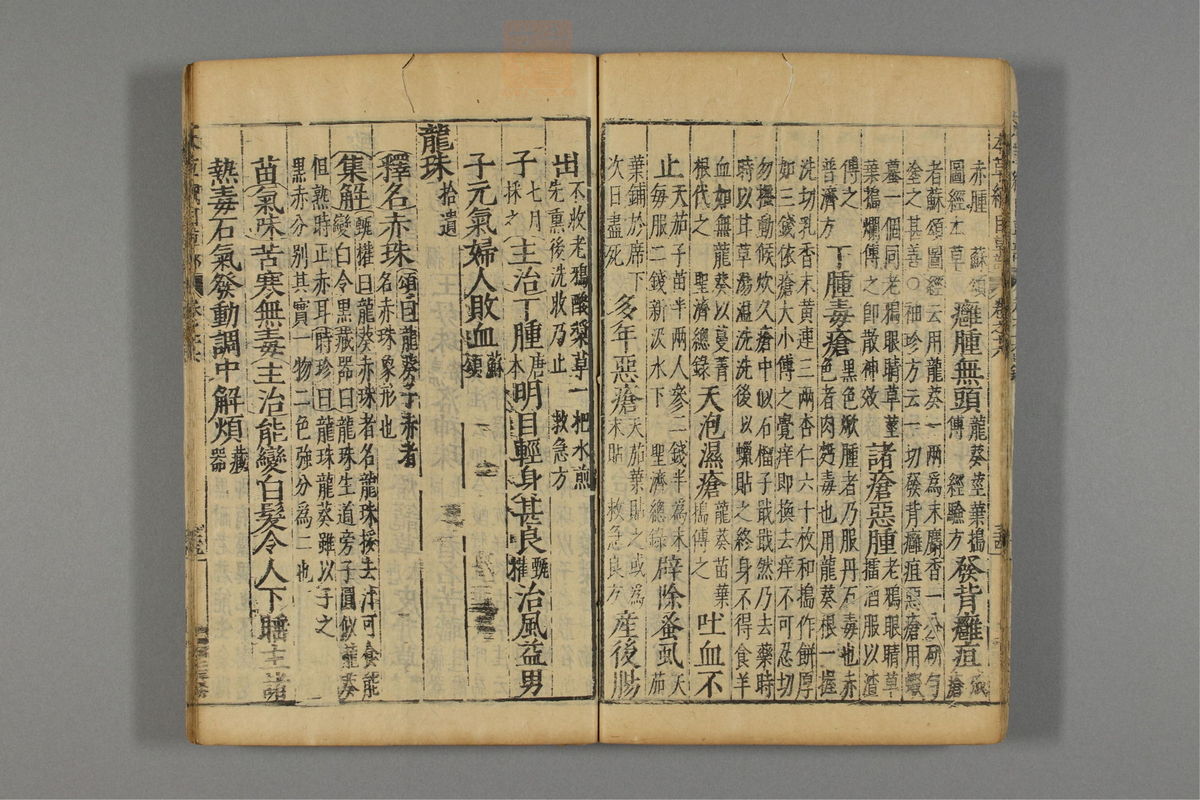 赤腫 蘇頌圖經本草 癰腫無頭 龍葵莖葉搗傅 經驗方 發背癰疽 成瘡
者蘇頌圖經云用龍葵一兩為末麝香一分研勻
塗之甚善○袖珍方云一切發背癰疽惡瘡用蝦
蟇一個同老鴉眼睛草莖葉搗爛傅之即散神效 諸瘡惡腫 老鴉眼睛草擂酒服以渣
傅之 普濟方 丁腫毒瘡 黑色焮腫者乃服丹石毒也赤色者肉麪毒也用龍葵根一握
洗切乳香末黃連三兩杏仁六十枚和搗作餅厚
如三錢依瘡大小傅之覺痒即換去痒不可忍切
勿擾動候炊久瘡中似石榴子戢戢然乃去藥時
時以甘草湯溫洗洗後以蠟貼之終身不得食羊
血如無龍葵以蔓菁根代之 聖濟總錄 天泡濕瘡 龍葵苗葉搗傅之 吐血不
止 天茄子苗半兩人參二錢半為末每服二錢新汲水下 聖濟總錄 辟除蚤虱 天茄
葉鋪於席下次日盡死 多年惡瘡 天茄葉貼之或為末貼 救急良方 產後腸
出 不收老鴉酸漿草一把水煎先熏後洗收乃止 救急方
子 七月採之 主治丁腫 唐本 明目輕身甚良 甄權 治風益男
子元氣婦人敗血 蘇頌
龍珠 拾遺
釋名赤珠 頌曰龍葵子赤者名赤珠象形也
集解 甄權曰龍葵赤珠者名龍珠挼去汁可食能
變白令黑藏器曰龍珠生道旁子圓似龍葵
但熟時正赤耳時珍曰龍珠龍葵雖以子之
黑赤分別其實一物二色強分為二也
苗氣味苦寒無毒主治能變白髮令人不睡主諸
熱毒石氣發動調中解煩 藏器